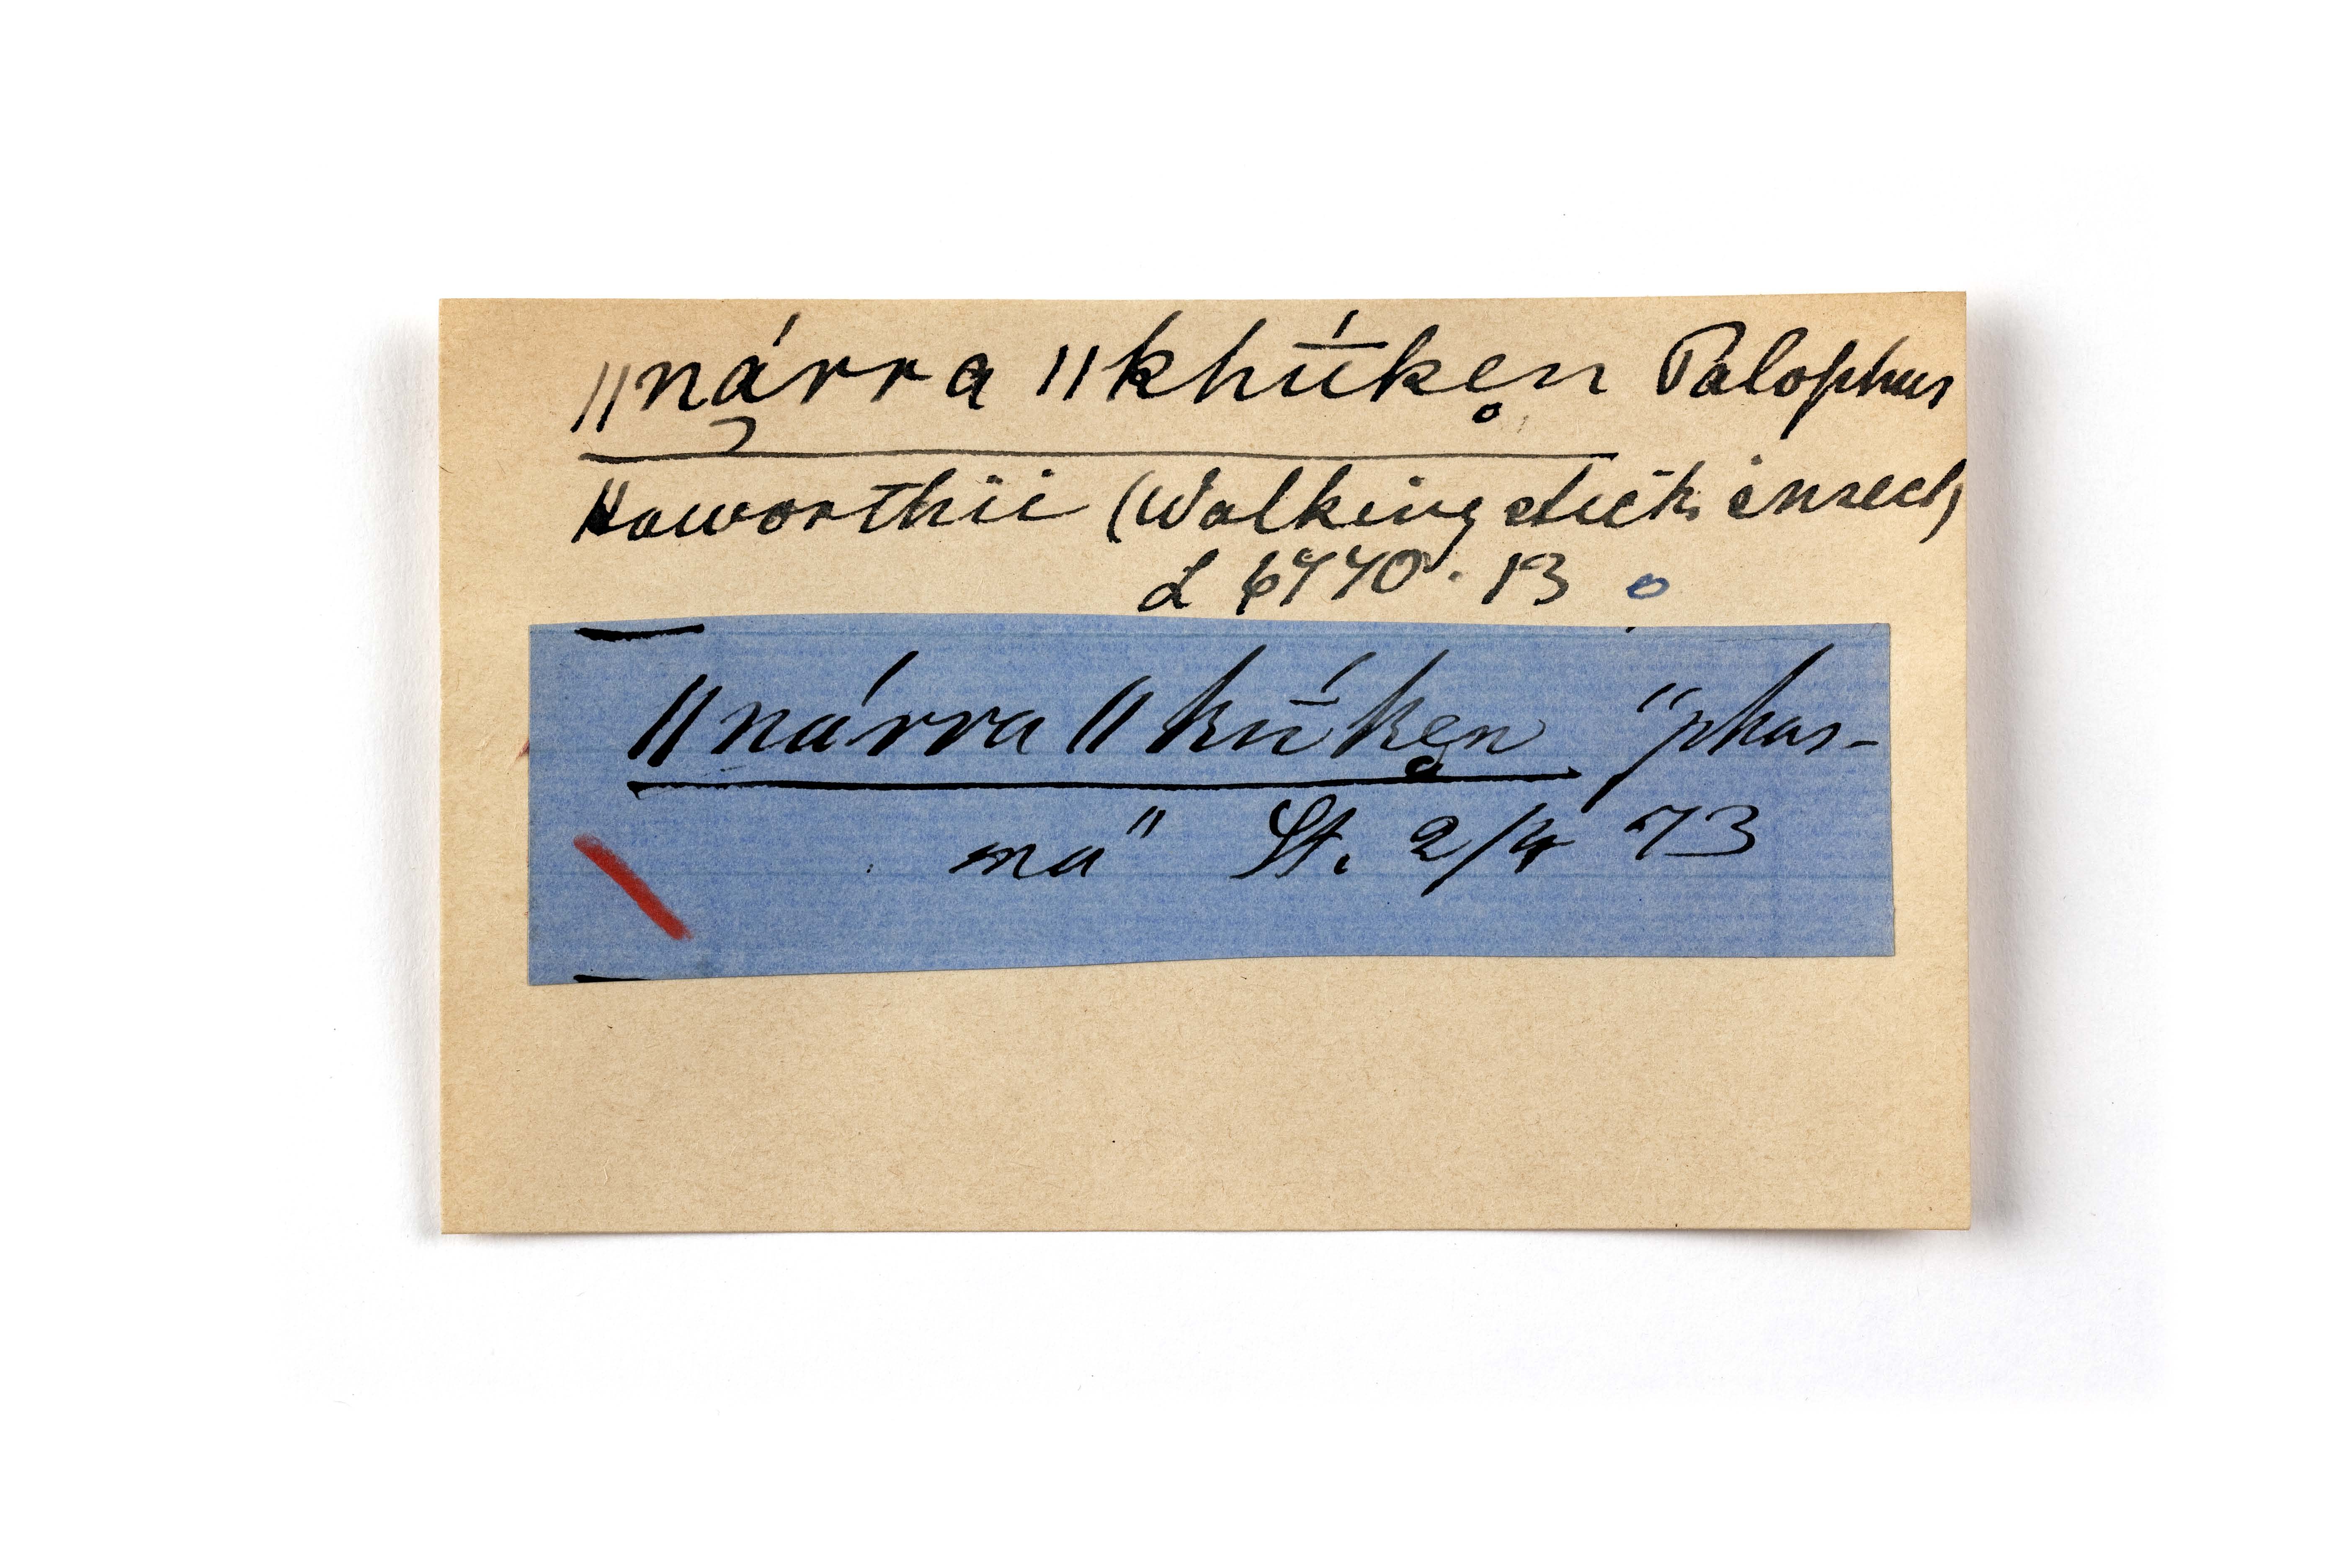 ǁnárra ǁkhū́ken̥ Palophus
Haworthii (Walking stick insect)
L 6770. 13
ǁnárra ǁkū́ken̥ "phas-
ma" St. 2/4 73